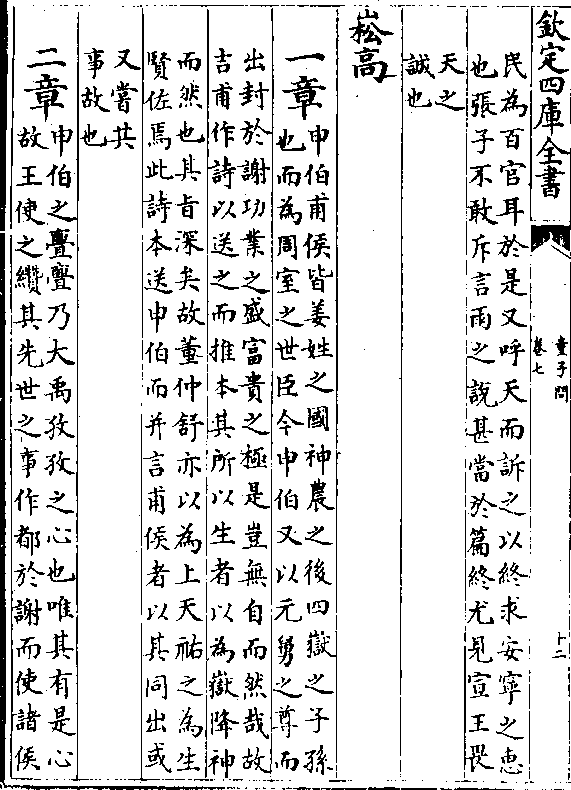 欽定四庫全書
童子問
卷七
十二
民為百官耳於是又呼天而訴之以終求安寧之惠
也張子不敢斥言雨之說甚當於篇終尤見宣王畏
天之
誠也
崧高
一章申伯甫侯皆姜姓之國神農之後四嶽之子孫
也而為周室之世臣今申伯又以元舅之尊而
出封於謝功業之盛富貴之極是豈無自而然哉故
吉甫作詩以送之而推本其所以生者以為嶽降神
而然也其旨深矣故董仲舒亦以為上天祐之為生
賢佐焉此詩本送申伯而并言甫侯者以其同出或
又嘗共
事故也
二章申伯之亹亹乃大禹孜孜之心也唯其有是心
故王使之纘其先世之事作都於謝而使諸侯